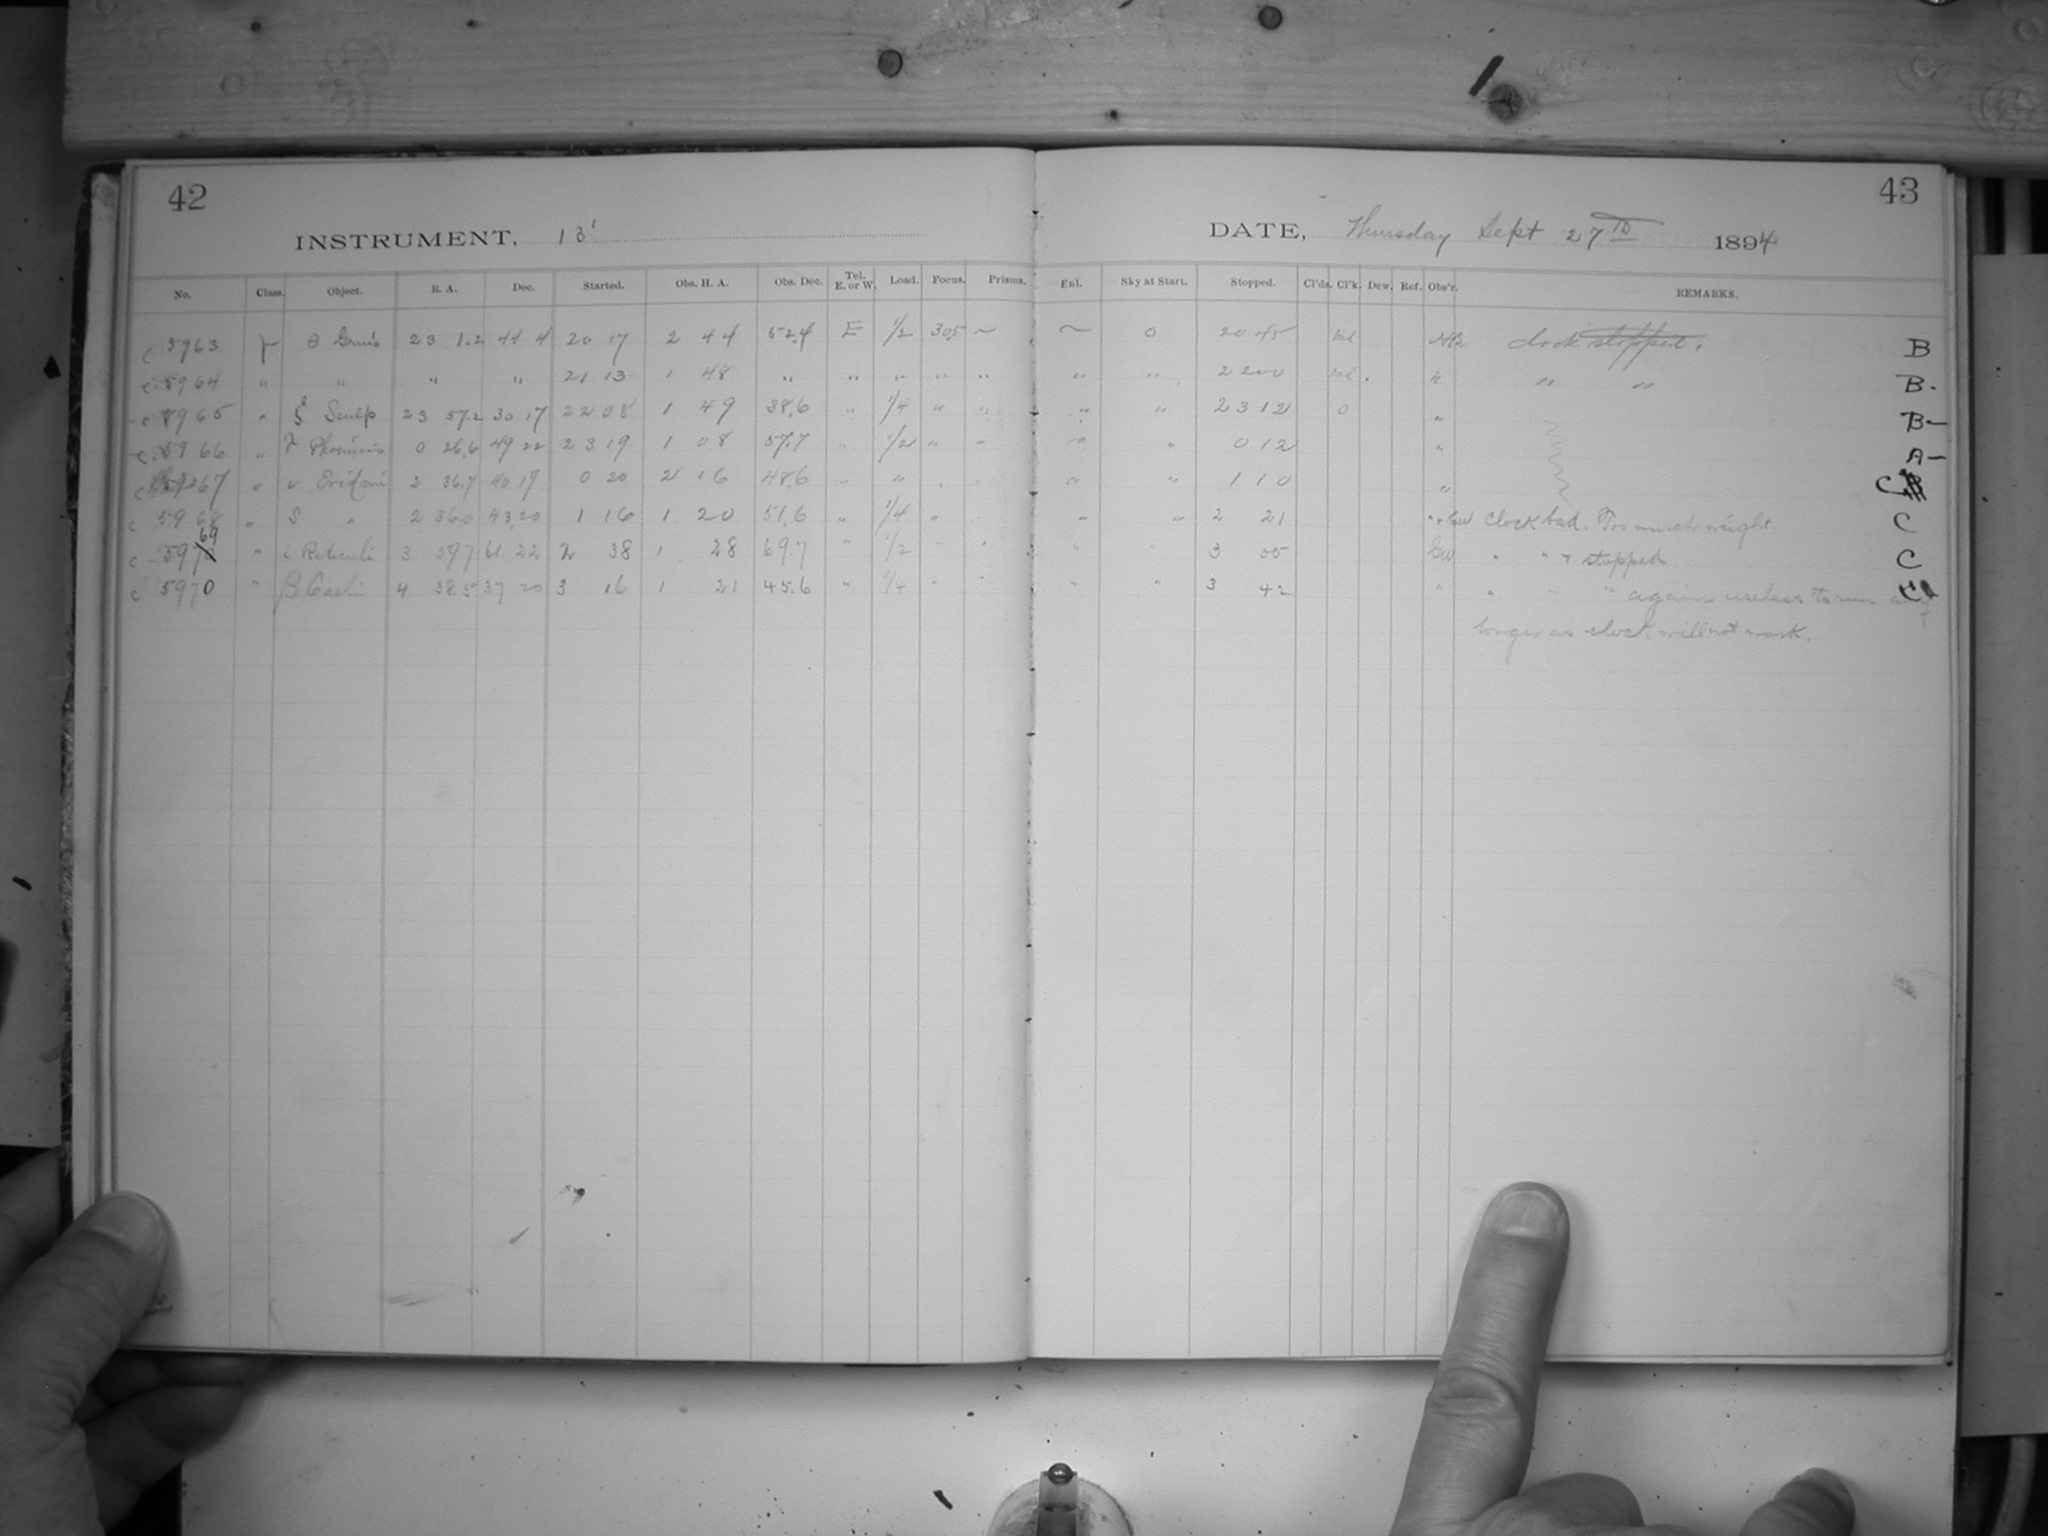 42
43
INSTRUMENT, 13'
DATE, Thursday Sept 27TH 1894
No. Class. Object. R. A. Dec. Started. Obs. H. A. Obs. Dec. Tel. E. or W. Load. Focus. Prisms. Enl. Sky at Start. Stopped. Cl'ds. Cl'k. Dew. Ref. Obs'r. REMARKS.
c 5963 θ Gruis 23 1.2 44 4 20 17 2 44 52.4 E 1/2 305 ~ ~ 0 20 45 clock stopped. B
c 5964 " " " " 21 13 1 48 " " " " " " " 22 00 " " B-
c 5965 " Sculp 23 57.2 30 17 22 08 1 49 38.6 " 1/4 " " " " 23 12 0 " B-
c 5966 " Phoenicis 0 26.6 49 22 23 19 1 08 57.7 " 1/2 " " " " 0 12 " A-
c 5967 " Eridani 2 36.7 40 17 0 20 2 16 48.6 " " " " " 1 10 " C
c 5968 " S " 2 36.0 43.20 1 16 1 20 51.6 " 1/4 " " " 2 21 Clock bad. Too much weight C
c 5969 " ι Reticuli 3 59.7 61.22 2 38 1 28 69.7 " 1/2 " " " " 3 05 GW " " + stopped C
c 5970 " β Caeli 4 38.5 37 20 3 16 1 21 45.6 " 1/4 " " " " 3 42 " " " " again useless to run any
longer as clock will not work.